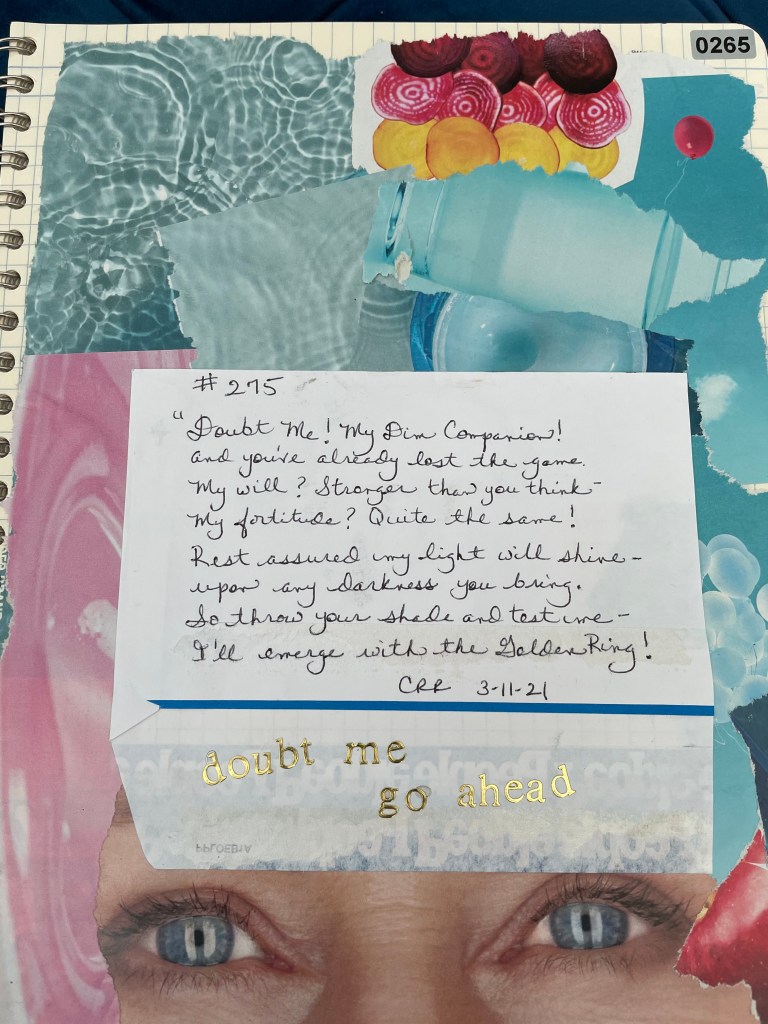 0265
# 275
"Doubt Me! My Dim Companion!
and you've already lost the game.
My will? Stronger than you think-
My fortitude? Quite the same!
Rest assured my light will shine-
upon any darkness you bring.
So throw your shade and test me-
I'll emerge with the Golden Ring!
CRR 3-11-21
doubt me
go ahead